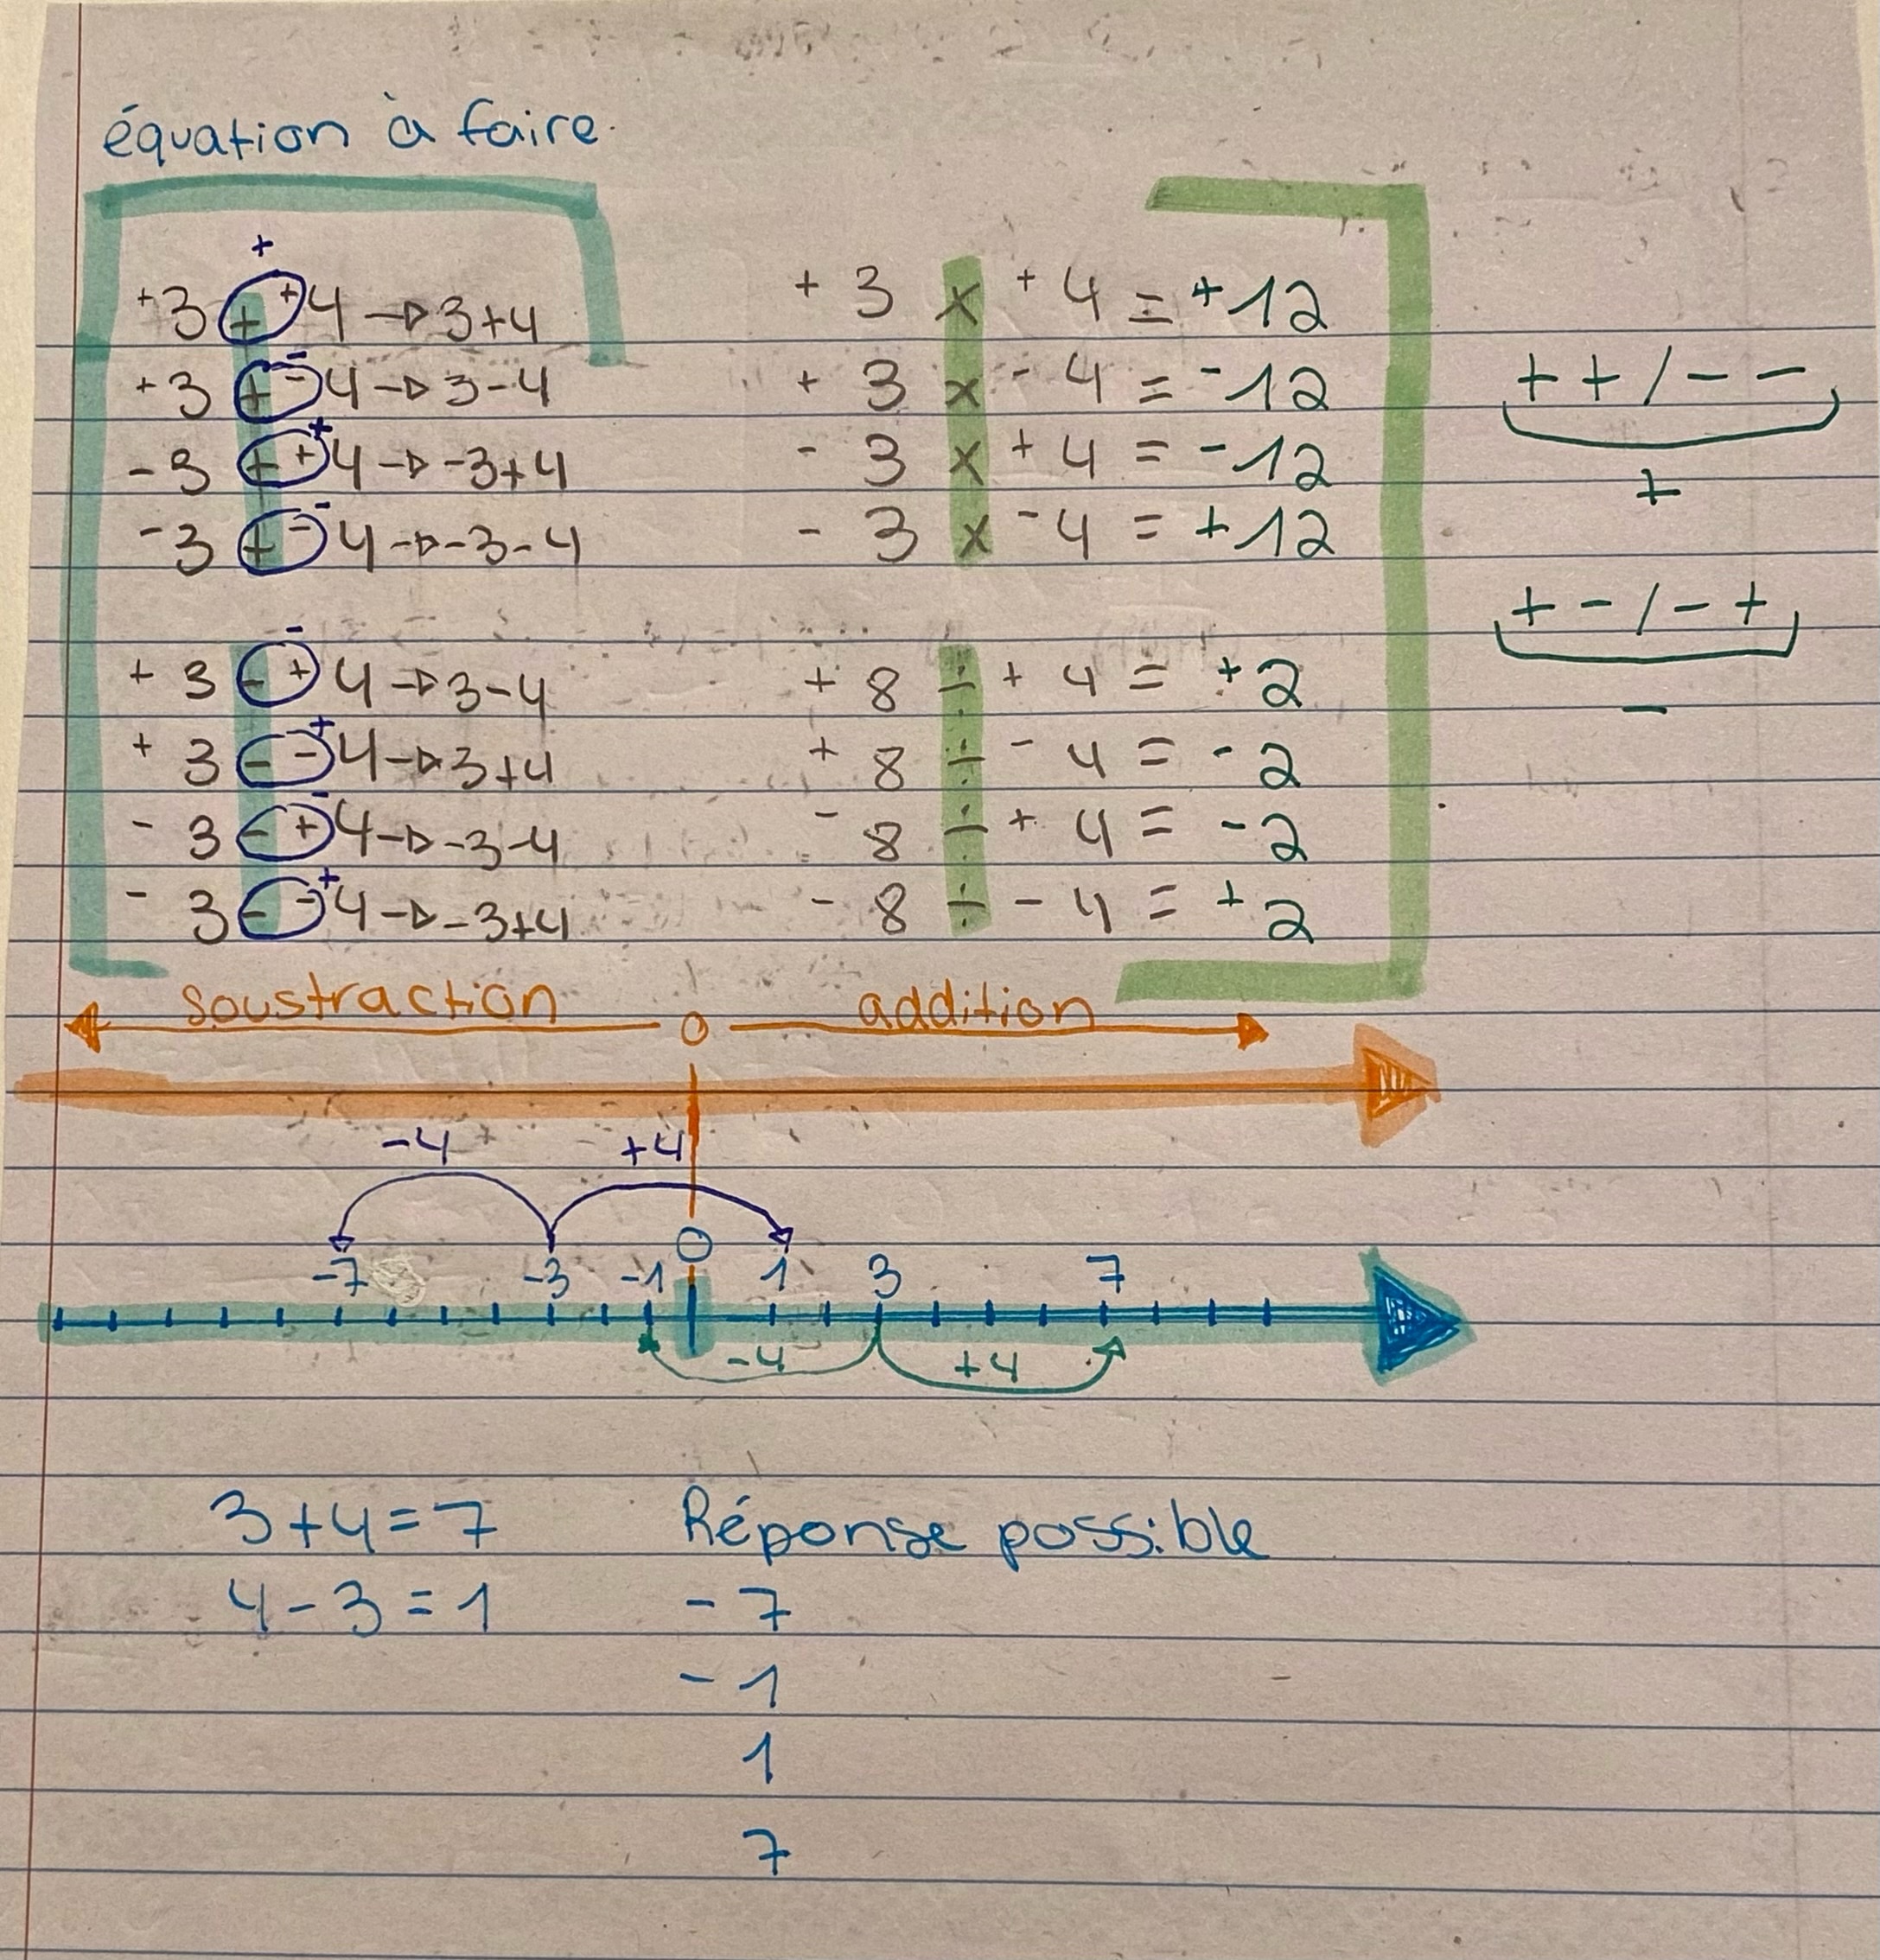 équation à faire
+
+3 + +4 → 3+4
+ 3 x + 4 = +12
-
+3 + -4 → 3-4
+ 3 x - 4 = -12
+ + / - -
+
-3 + +4 → -3+4
- 3 x + 4 = -12
+
-
-3 + -4 → -3-4
- 3 x - 4 = +12
+ - / - +
-
-
+ 3 - +4 → 3-4
+ 8 ÷ + 4 = +2
+
+ 3 - -4 → 3+4
+ 8 ÷ - 4 = -2
-
- 3 - +4 → -3-4
- 8 ÷ + 4 = -2
+
- 3 - -4 → -3+4
- 8 ÷ - 4 = +2
soustraction 0 addition
-4 +4
0
-7 -3 -1 1 3 7
-4 +4
3+4=7 Réponse possible
4-3=1 -7
-1
1
7